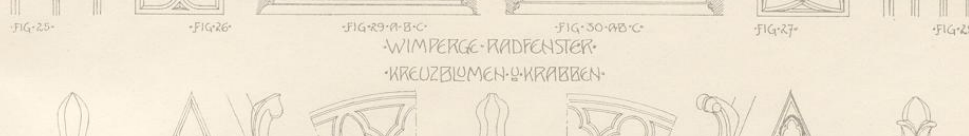 ·FIG·25· ·FIG·26· ·FIG·29·A·B·C· ·FIG·30·A·B·C· ·FIG·27·
·WIMPERGE·RADFENSTER·
·KREUZBLUMEN·U·KRABBEN·